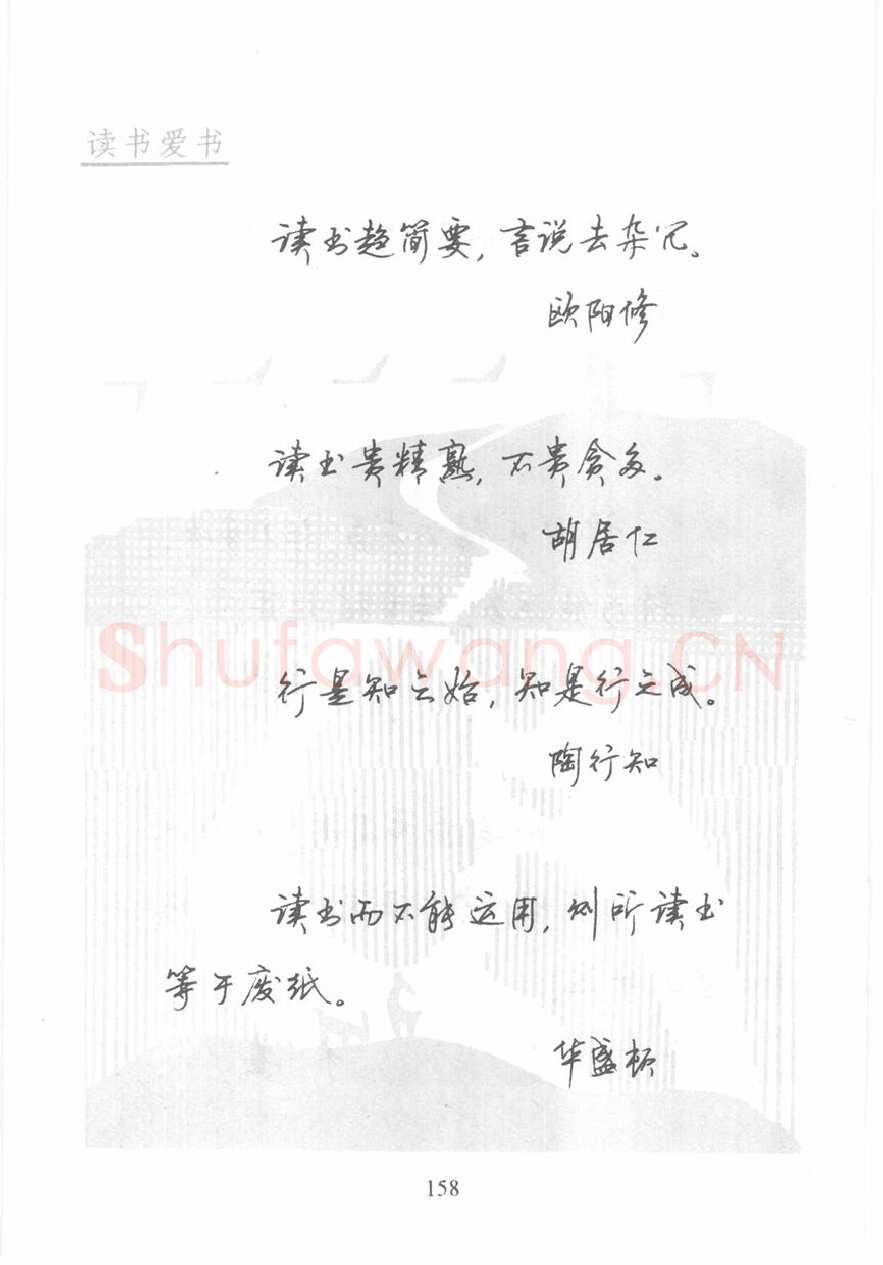 读书爱书
读书趋简要，言说去杂冗。
欧阳修
读书贵精熟，不贵贪多。
胡居仁
Shufawang.CN
行是知之始，知是行之成。
陶行知
读书而不能运用，则所读书
等于废纸。
华盛顿
158